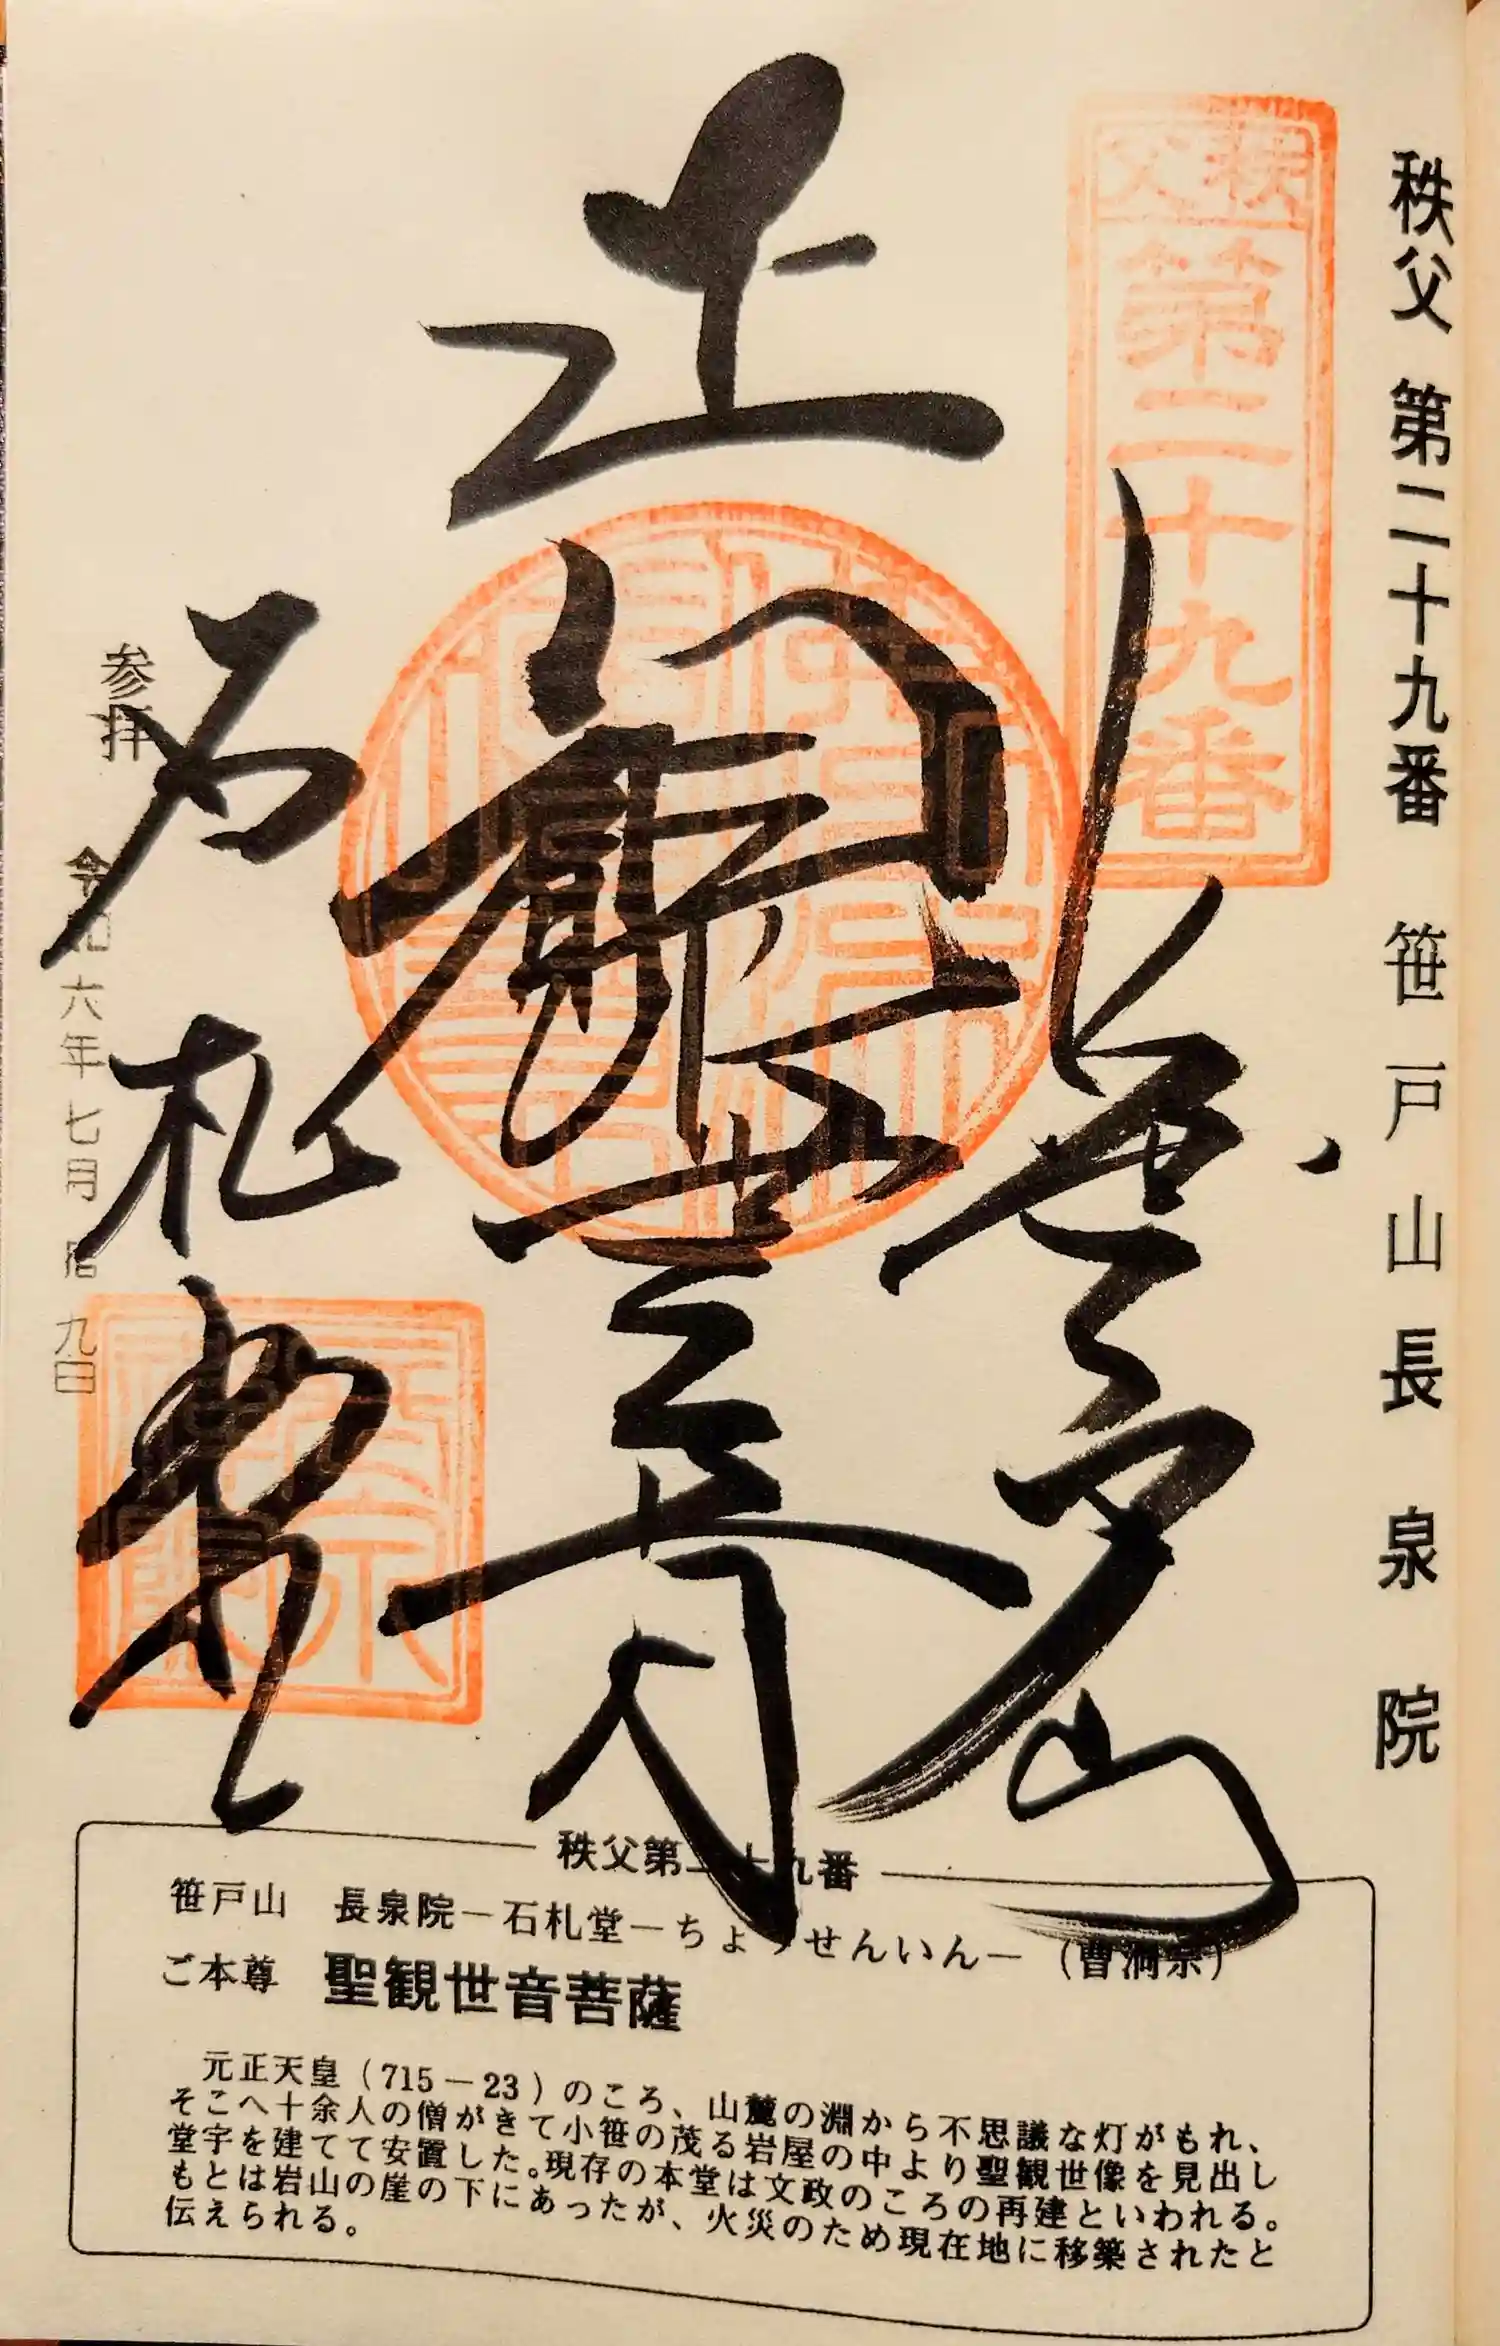 秩父 第二十九番 笹戸山長泉院
秩父
第二十九番
笹戸山
石札堂
参拝 令和六年七月 九日
秩父第二十九番
笹戸山 長泉院―石札堂―ちょうせんいん―（曹洞宗）
ご本尊 聖観世音菩薩
元正天皇（715－23）のころ、山麓の淵から不思議な灯がもれ、
そこへ十余人の僧がきて小笹の茂る岩屋の中より聖観世像を見出し
堂宇を建てて安置した。現存の本堂は文政のころの再建といわれる。
もとは岩山の崖の下にあったが、火災のため現在地に移築されたと
伝えられる。